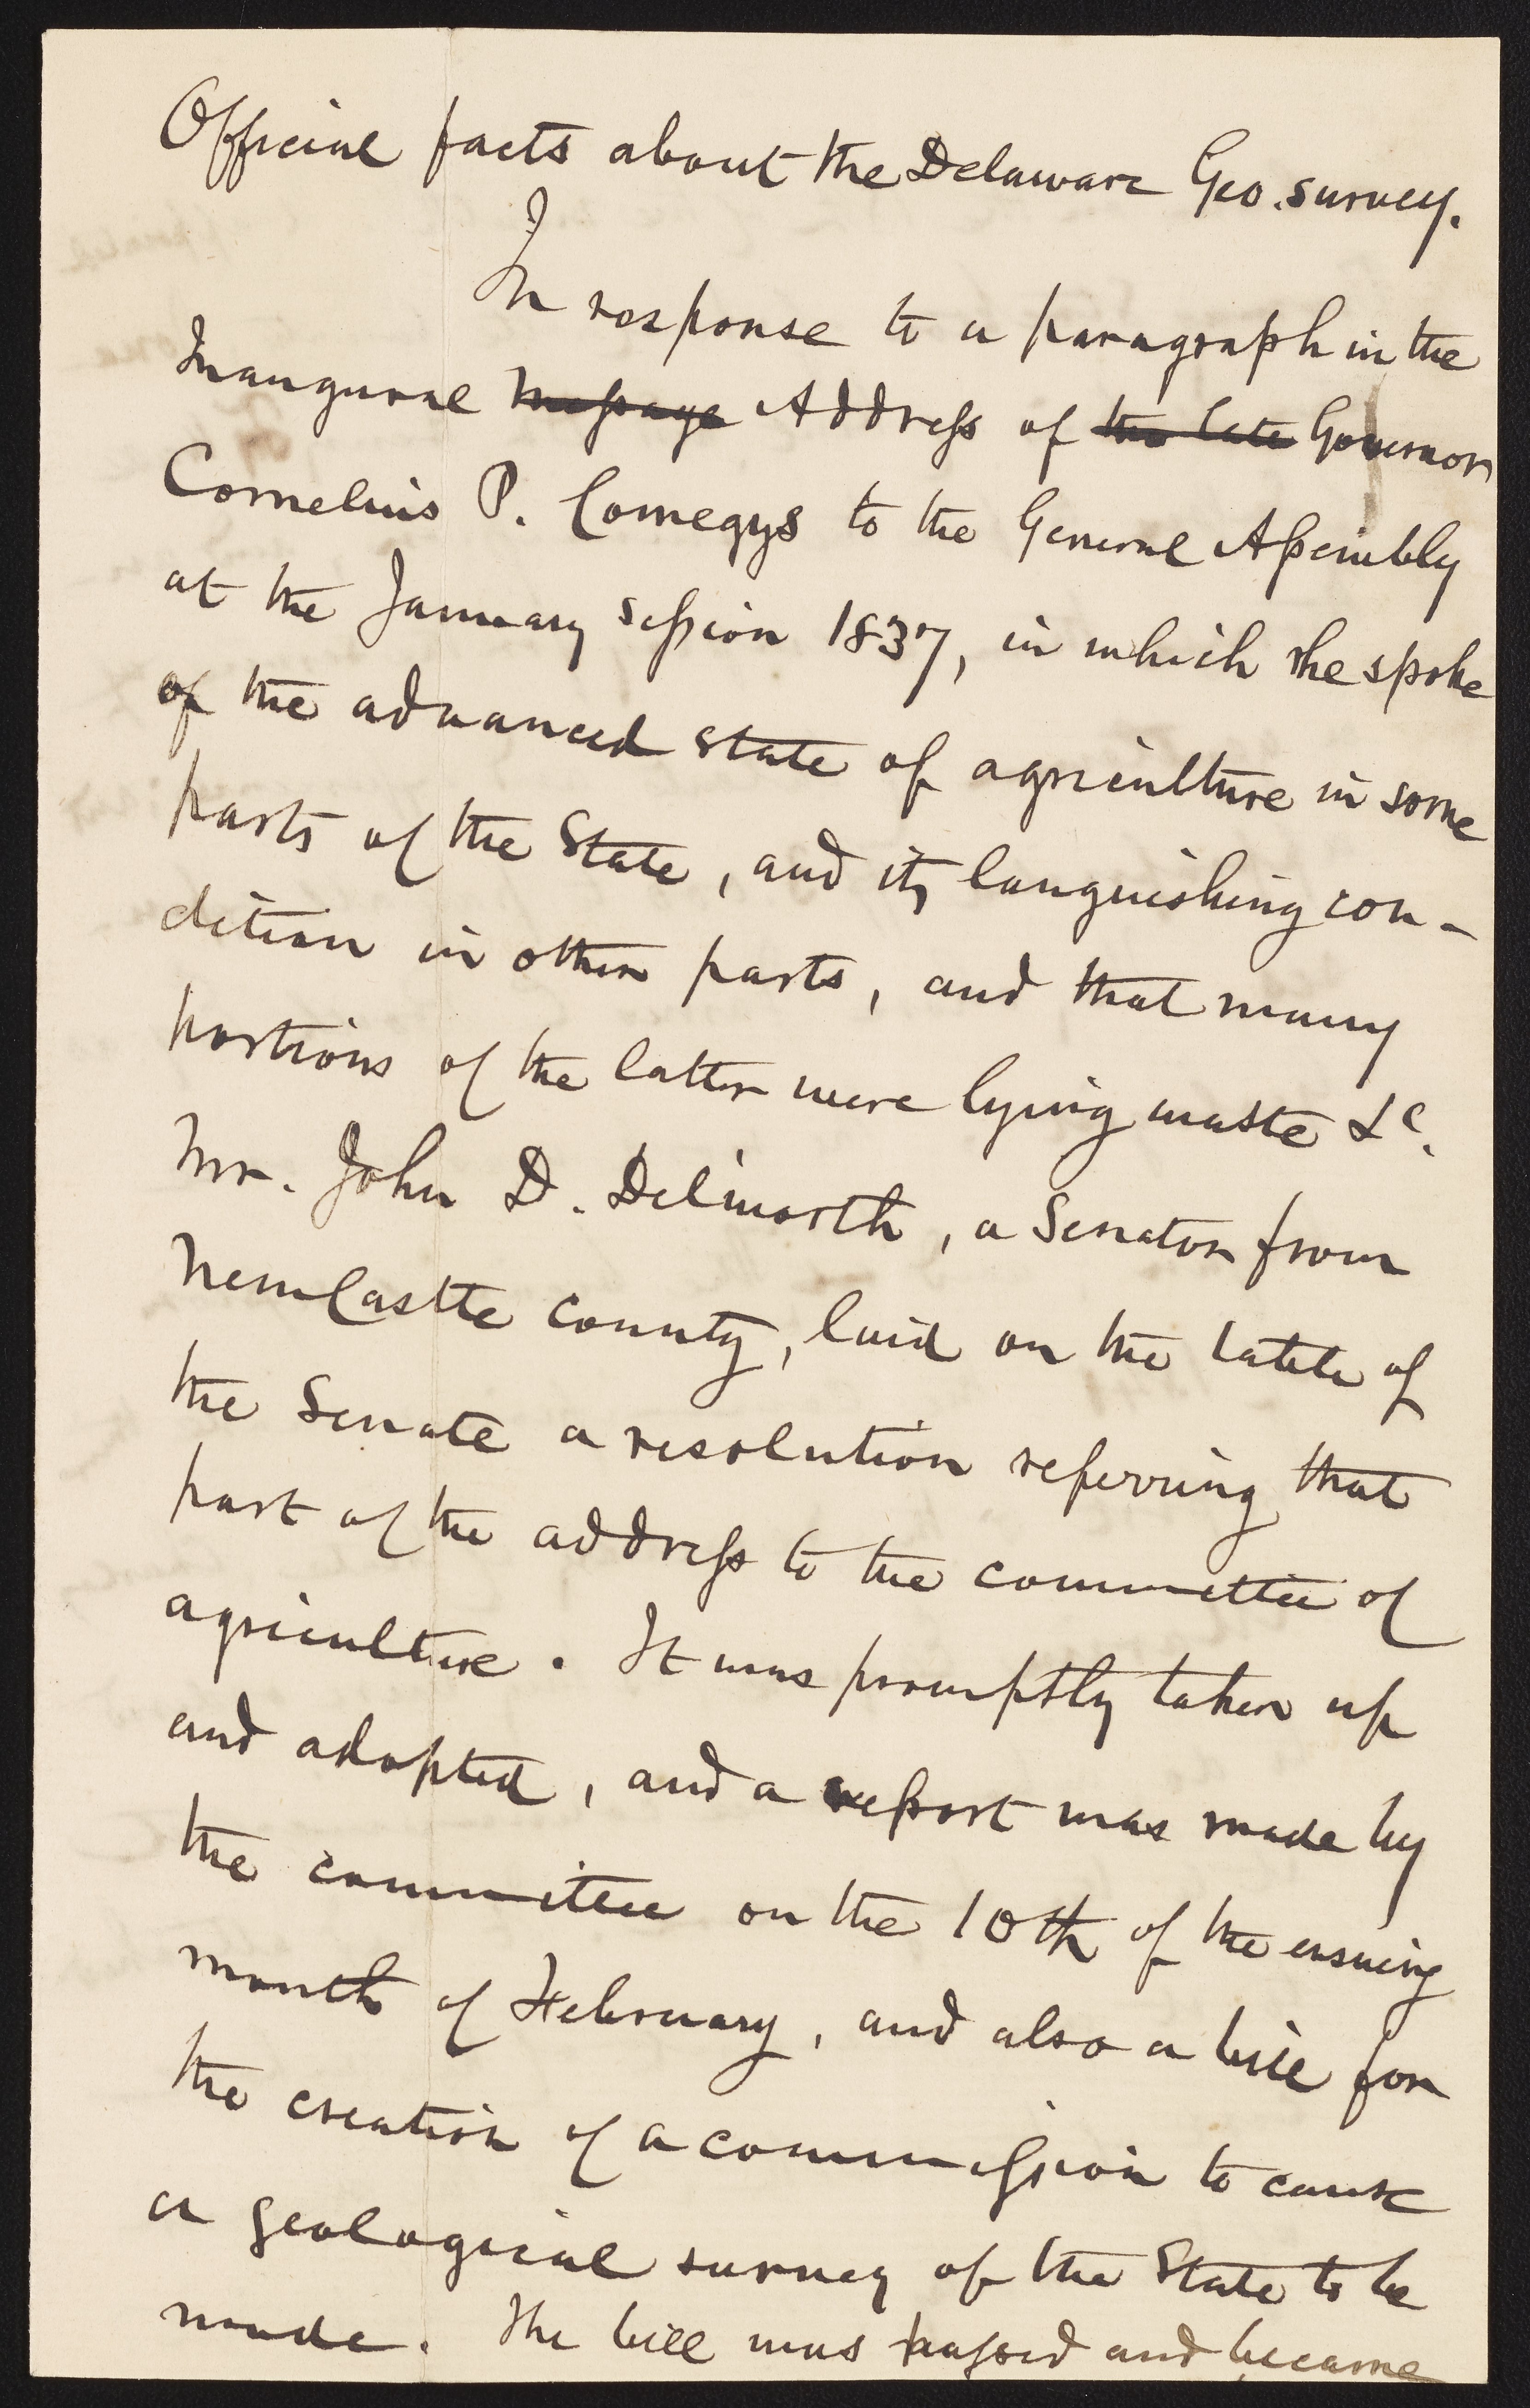 Official facts about the Delaware Geo. survey.
In response to a paragraph in the
Inaugural message Address of the late Governor
Cornelius P. Comegys to the General Assembly
at the January session 1837, in which he spoke
of the advanced state of agriculture in some
parts of the State, and its languishing con-
dition in other parts, and that many
portions of the latter were lying waste &c.
Mr. John D. Dilworth, a Senator from
New Castle county, laid on the table of
the Senate a resolution referring that
part of the address to the committee of
agriculture. It was promptly taken up
and adopted, and a report was made by
the committee on the 10th of the ensuing
month of February, and also a bill for
the creation of a commission to cause
a geological survey of the State to be
made. The bill was passed and became